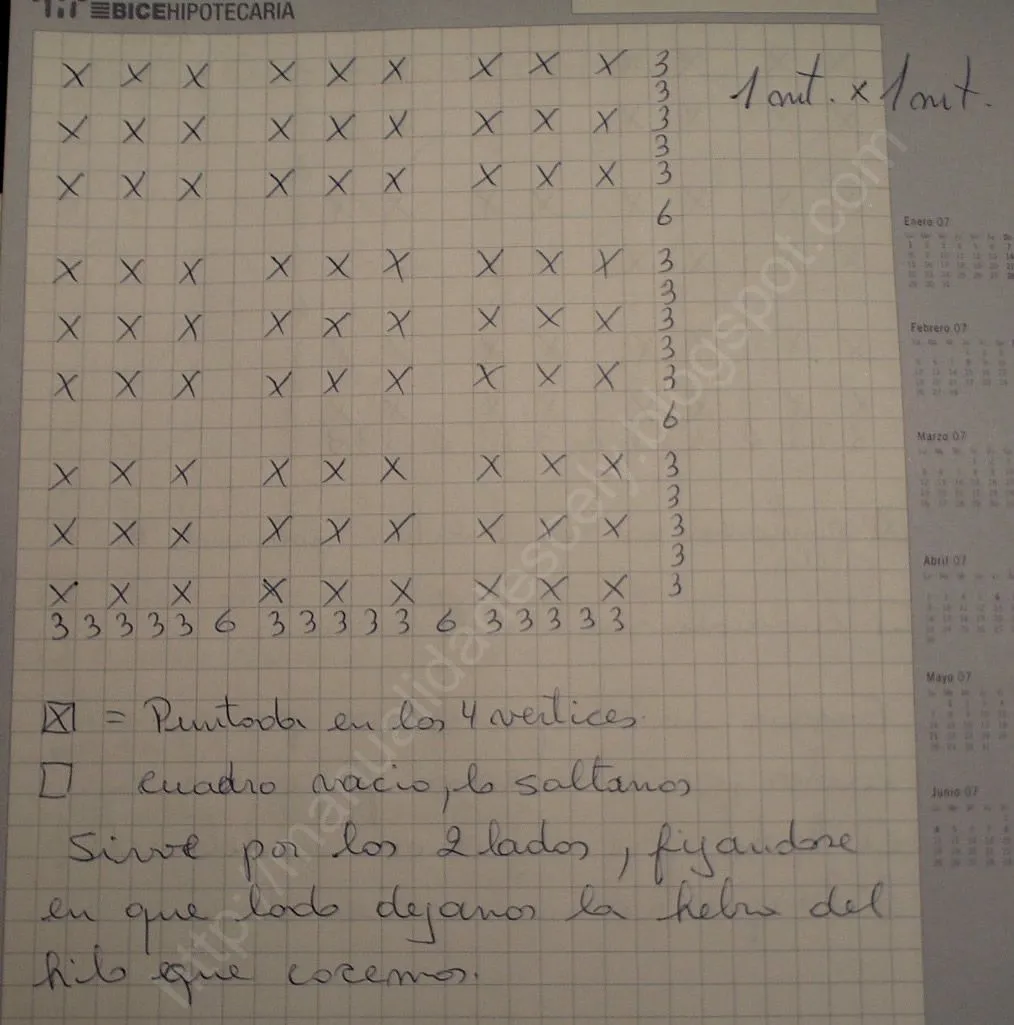 BICEHIPOTECARIA
X X X X X X X X X 3
3
X X X X X X X X X 3
3
X X X X X X X X X 3
6
X X X X X X X X X 3
3
X X X X X X X X X 3
3
X X X X X X X X X 3
6
X X X X X X X X X 3
3
X X X X X X X X X 3
3
X X X X X X X X X 3
3 3 3 3 3 6 3 3 3 3 3 6 3 3 3 3 3
1 mt. x 1 mt.
X = Puntada en los 4 vertices.
cuadro vacio, lo saltamos
Sirve por los 2 lados, fijandose
en que lado dejamos la hebra del
hilo que cocemos.
Enero 07
Febrero 07
Marzo 07
Abril 07
Mayo 07
Junio 07
http://manualidadescely.blogspot.com